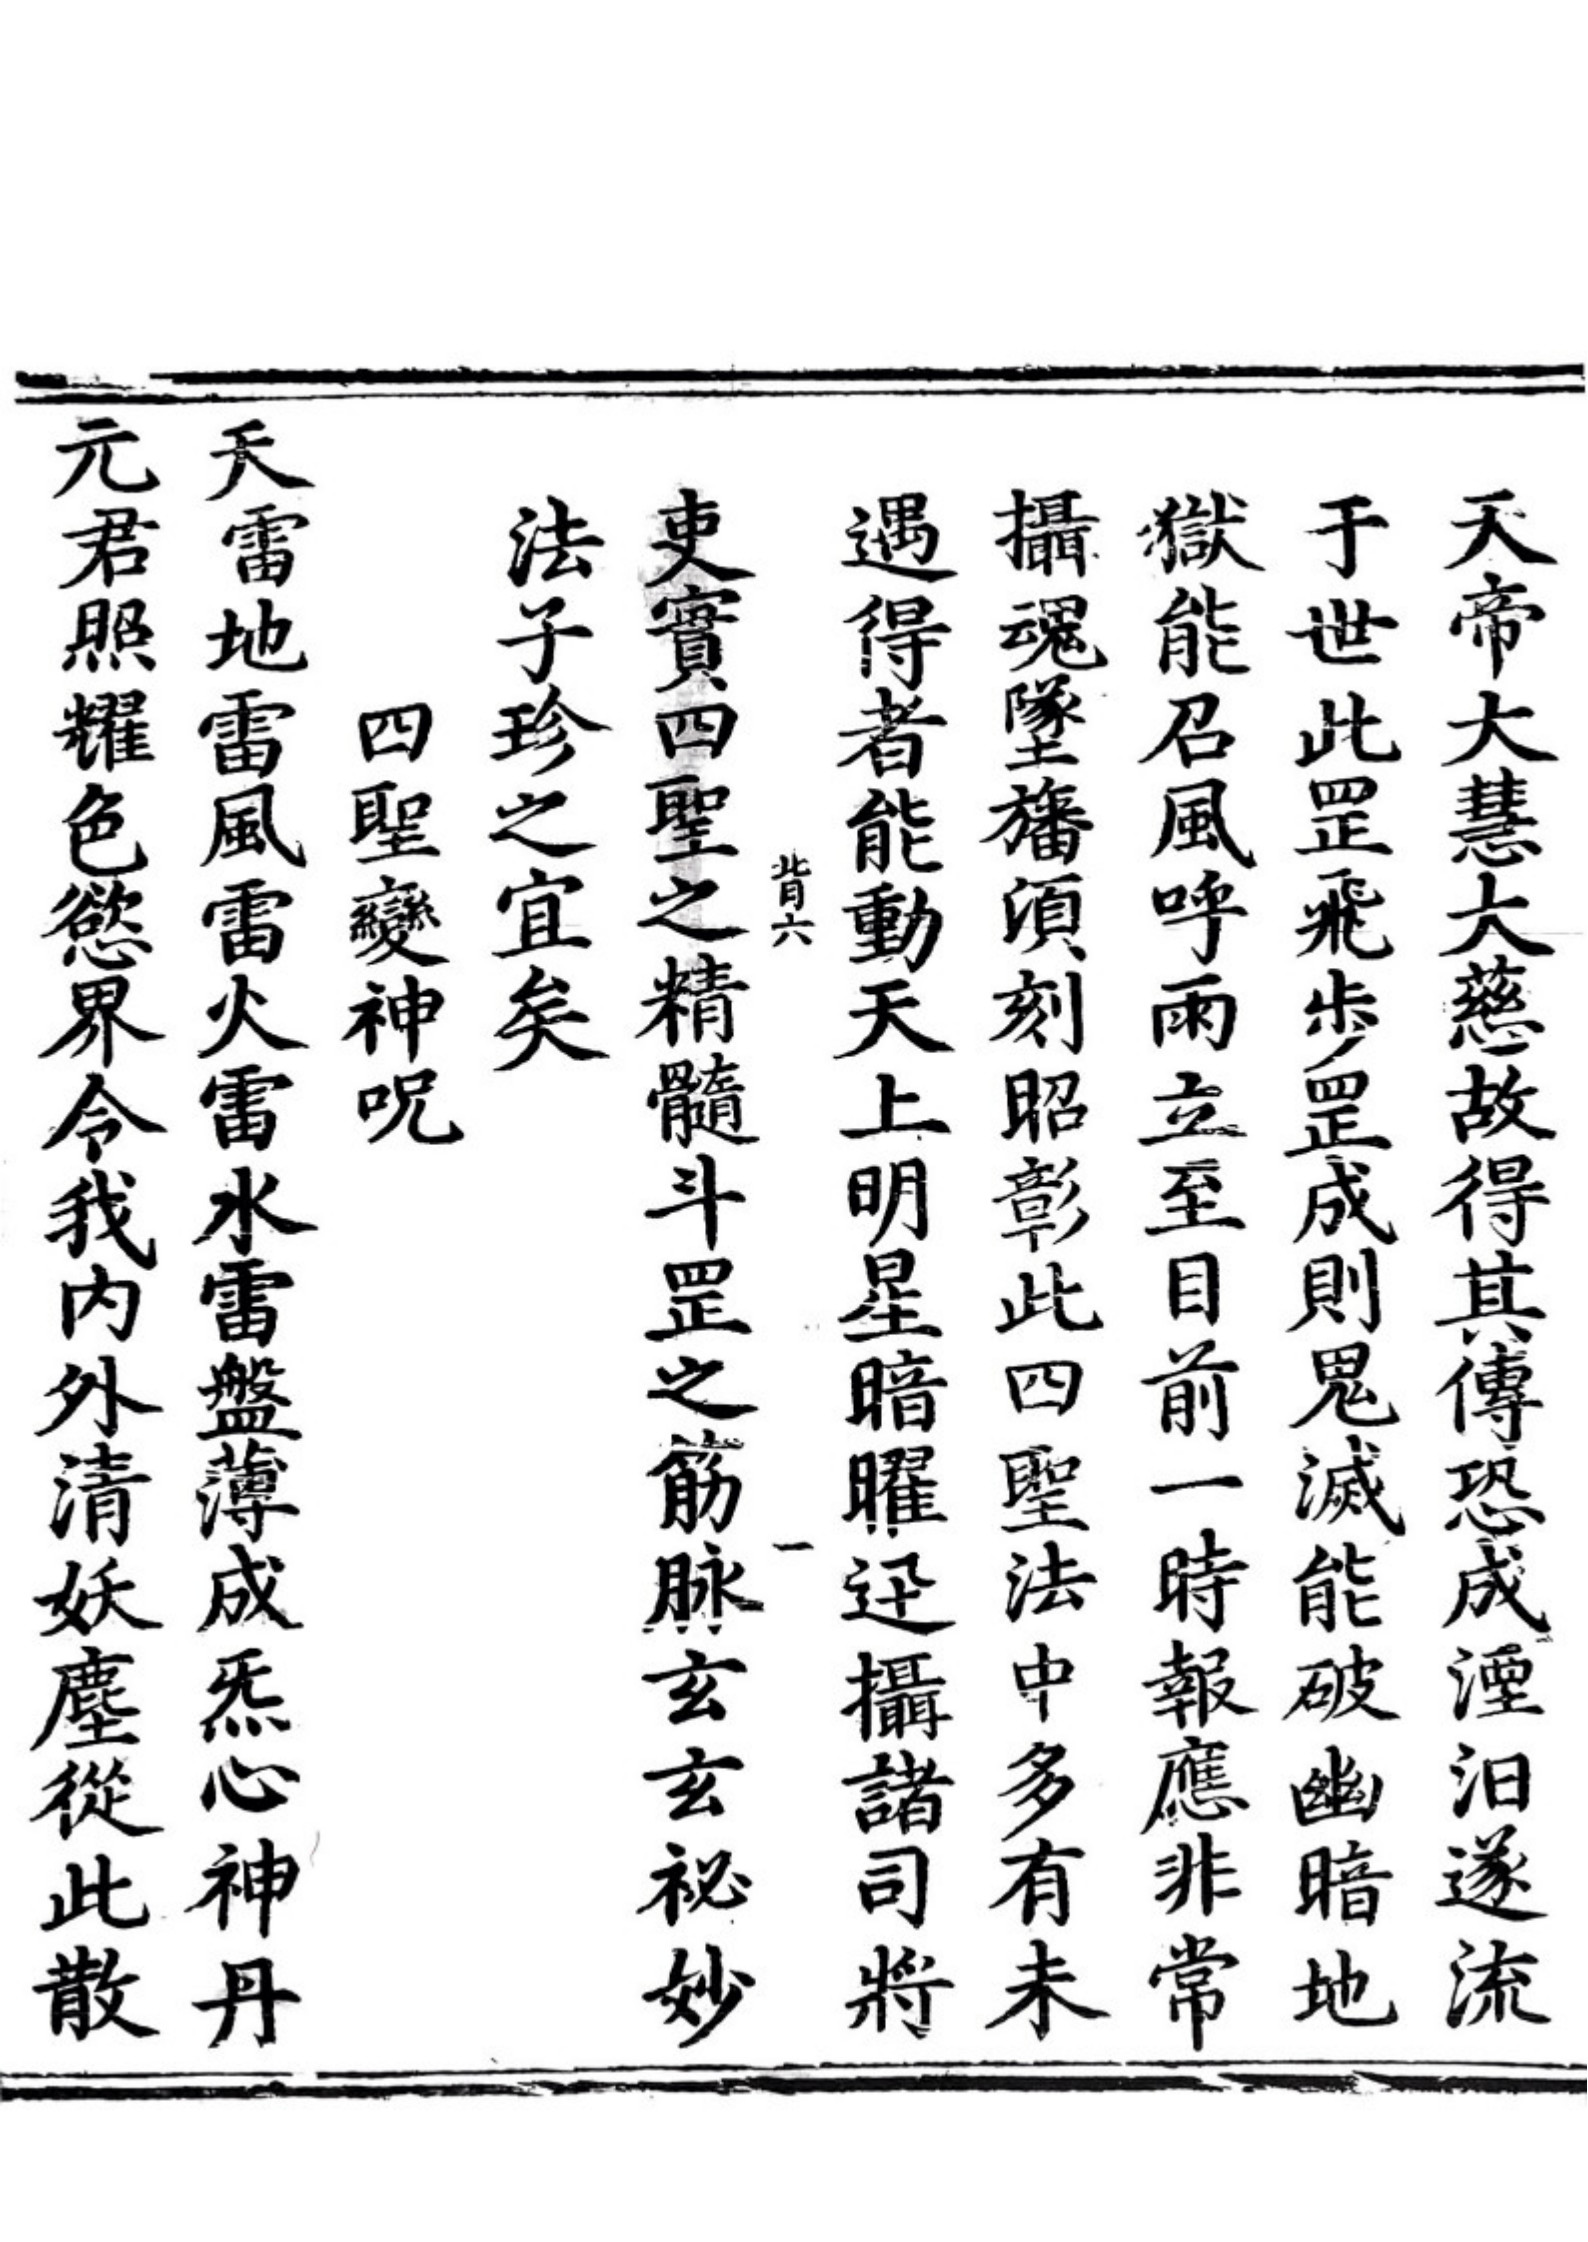 天帝大慧大慈故得其傳恐成湮汨遂流
于世此罡飛步罡成則鬼滅能破幽暗地
獄能召風呼雨立至目前一時報應非常
攝魂墜旛須刻昭彰此四聖法中多有未
遇得者能動天上明星暗曜迅攝諸司將
背六 一
吏實四聖之精髓斗罡之筋脉玄玄祕妙
法子珍之宜矣
四聖變神呪
天雷地雷風雷火雷水雷盤薄成炁心神丹
元君照耀色慾界令我內外清妖塵從此散